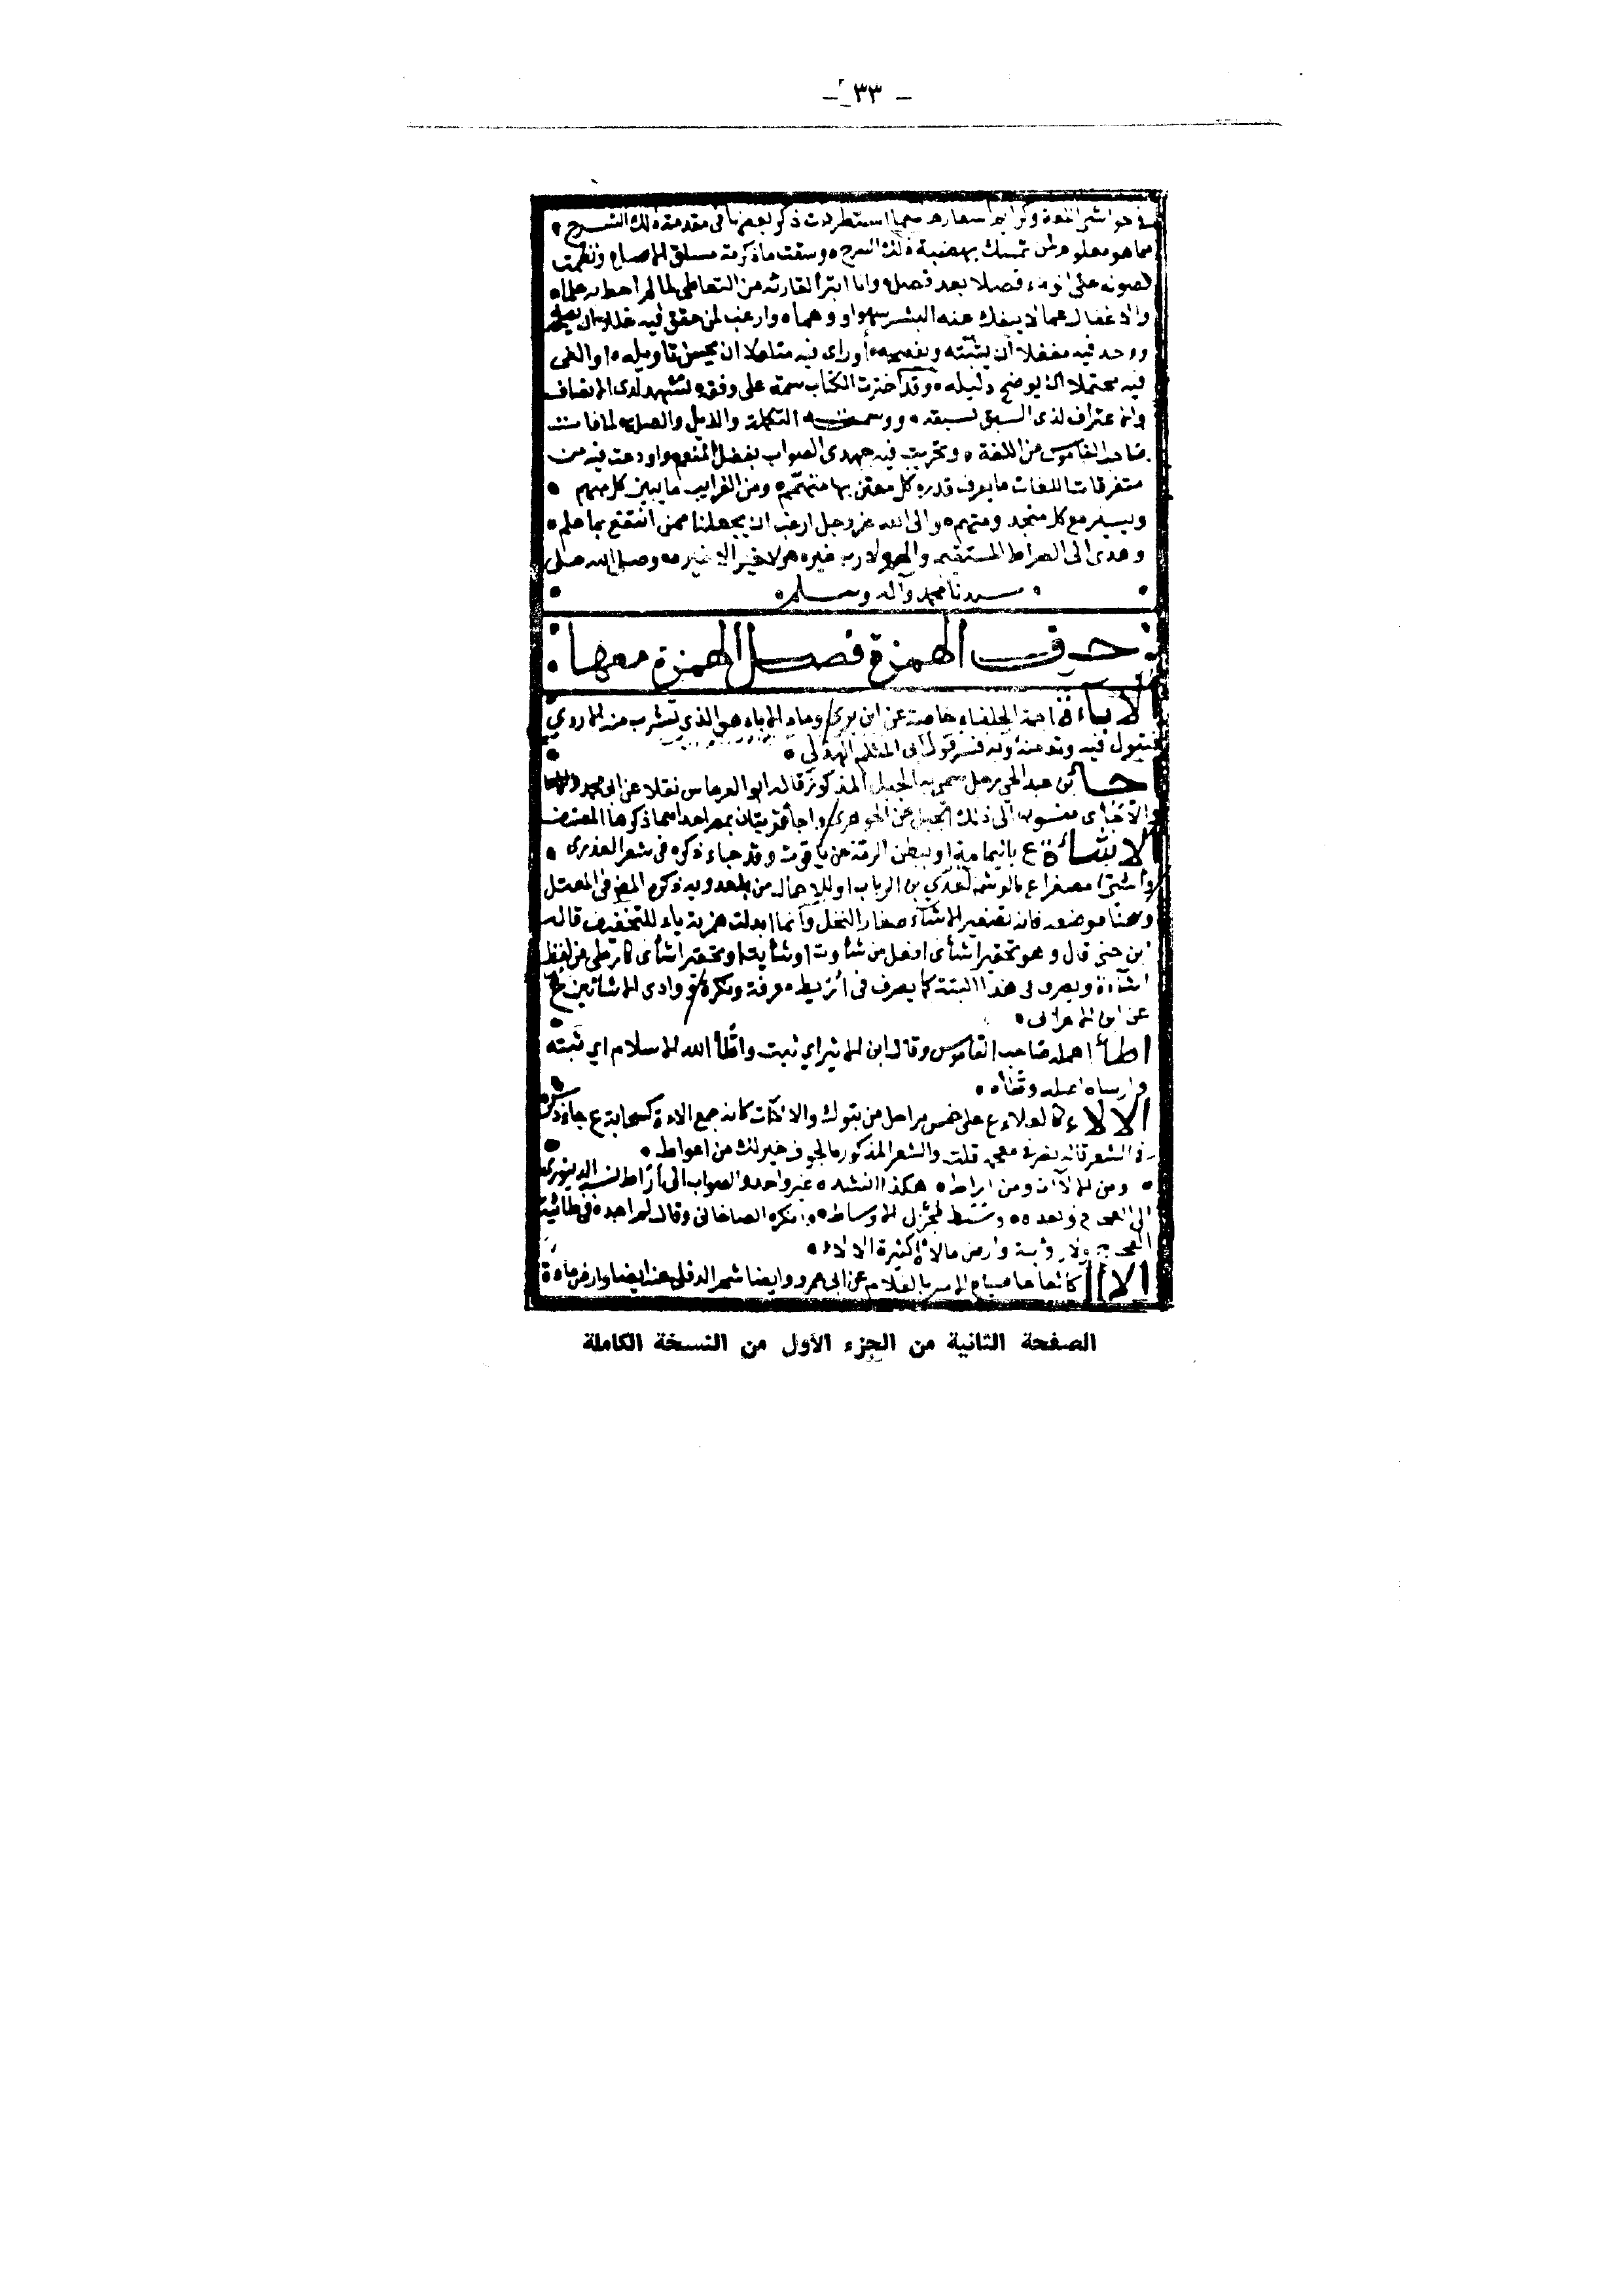 - ٣٣ -
استطردت ذكر بعضها فى مقدمة ذلك الشرح
مما هو معلوم لمن تمسك بهضبة ذلك السرح وسقت ما ذكرته
فصلا بعد فصل وانا ابترأ لقارئه من التعاطى لما لم احط به علما
والاغفال عما لا ينفك عنه البشر سهوا ووهما وارغب لمن حقق فيه خللا ان يصلحه
ووجد فيه مغفلا ان يثبته ويفصحه أو رأى فيه متأولا ان يحسن تأويله او الفى
فيه محتملا ان يوضح دليله وقد اخترت الكتاب سمة على وفقه لتشهد لدى الانصاف
والاعتراف لذى السبق لسبقه ووسمته التكملة والذيل والصلة لما فات
صاحب القاموس من اللغة وتحريت فيه جهدى الصواب بفضل المنعم واودعت فيه من
متفرقات اللغات ما يعرف قدره كل معتن بها منهم ومن الغرايب ما يبين كل مبهم
ويسير مع كل منجد ومتهم والى الله عز وجل ارغب ان يجعلنا ممن انتفع بما علم
وهدى الى الصراط المستقيم لا رب غيره ولا خير الا خيره وصلى الله على
سيدنا محمد وآله وسلم
حرف الهمزة فصل الهمزة معها
الاباءة اجمة الحلفاء خاصة عن ابن برى وماء الاباء هو الذى تشرب منه الاروى
فتبول فيه وتدمنه وبه فسر قول ابى المثلم الهذلى
اجأ بن عبد الحى رجل سمى به الجبل المذكور قاله ابو العرماس نقلا عن ابى محمد
والاجأى منسوب الى ذلك الجبل عن الجوهرى واجأ قريتان بمصر احداهما ذكرها المصنف
الاشاءة ع باليمامة او ببطن الرمة عن ياقوت وقد جاء ذكره فى شعر العذرى
وأشىّ مصغرا ع بالوشم لعدى بن الرباب او للاحمال من بلعدوية ذكره المص فى المعتل
وهنا موضعه فانه تصغير الاشاء صغار النخل وانما ابدلت همزته ياء للتخفيف قاله
ابن جنى قال وهو تحقير اشأى افعل من شأوت او شأيت او تحقير اشأى كأرطى من لفظ
اشاءة ويصرف فى هذا البتة كما يصرف فى أريط معرفة ونكرة ووادى الاشائين ع
عن ابن الاعرابى
اطأ اهمله صاحب القاموس وقال ابن الاثير اي ثبت واطّأ الله الاسلام اي ثبته
وارساه اصله وطّأه
الالاء كالعلاء ع على خمس مراحل من تبوك والالاآت كانه جمع الاءة كسحابة ع جاء ذكره
فى الشعر قاله نصر فى معجمه قلت والشعر المذكور الجوف خير لك من اغواط
ومن الاآت ومن اراط هكذا انشده غير واحد والصواب الى أراط نسبه الدينورى
الى العجاج وبعده وانكره الصاغانى وقال لم اجده فى طائية
العجاج ولا رؤبة وارض مالأة كثيرة الالاء
الاا كالعاعا صياح الامير بالغلام عن ابى عمرو وايضا شجر الدفلى عنه ايضا وارض ماءة
الصفحة الثانية من الجزء الأول من النسخة الكاملة